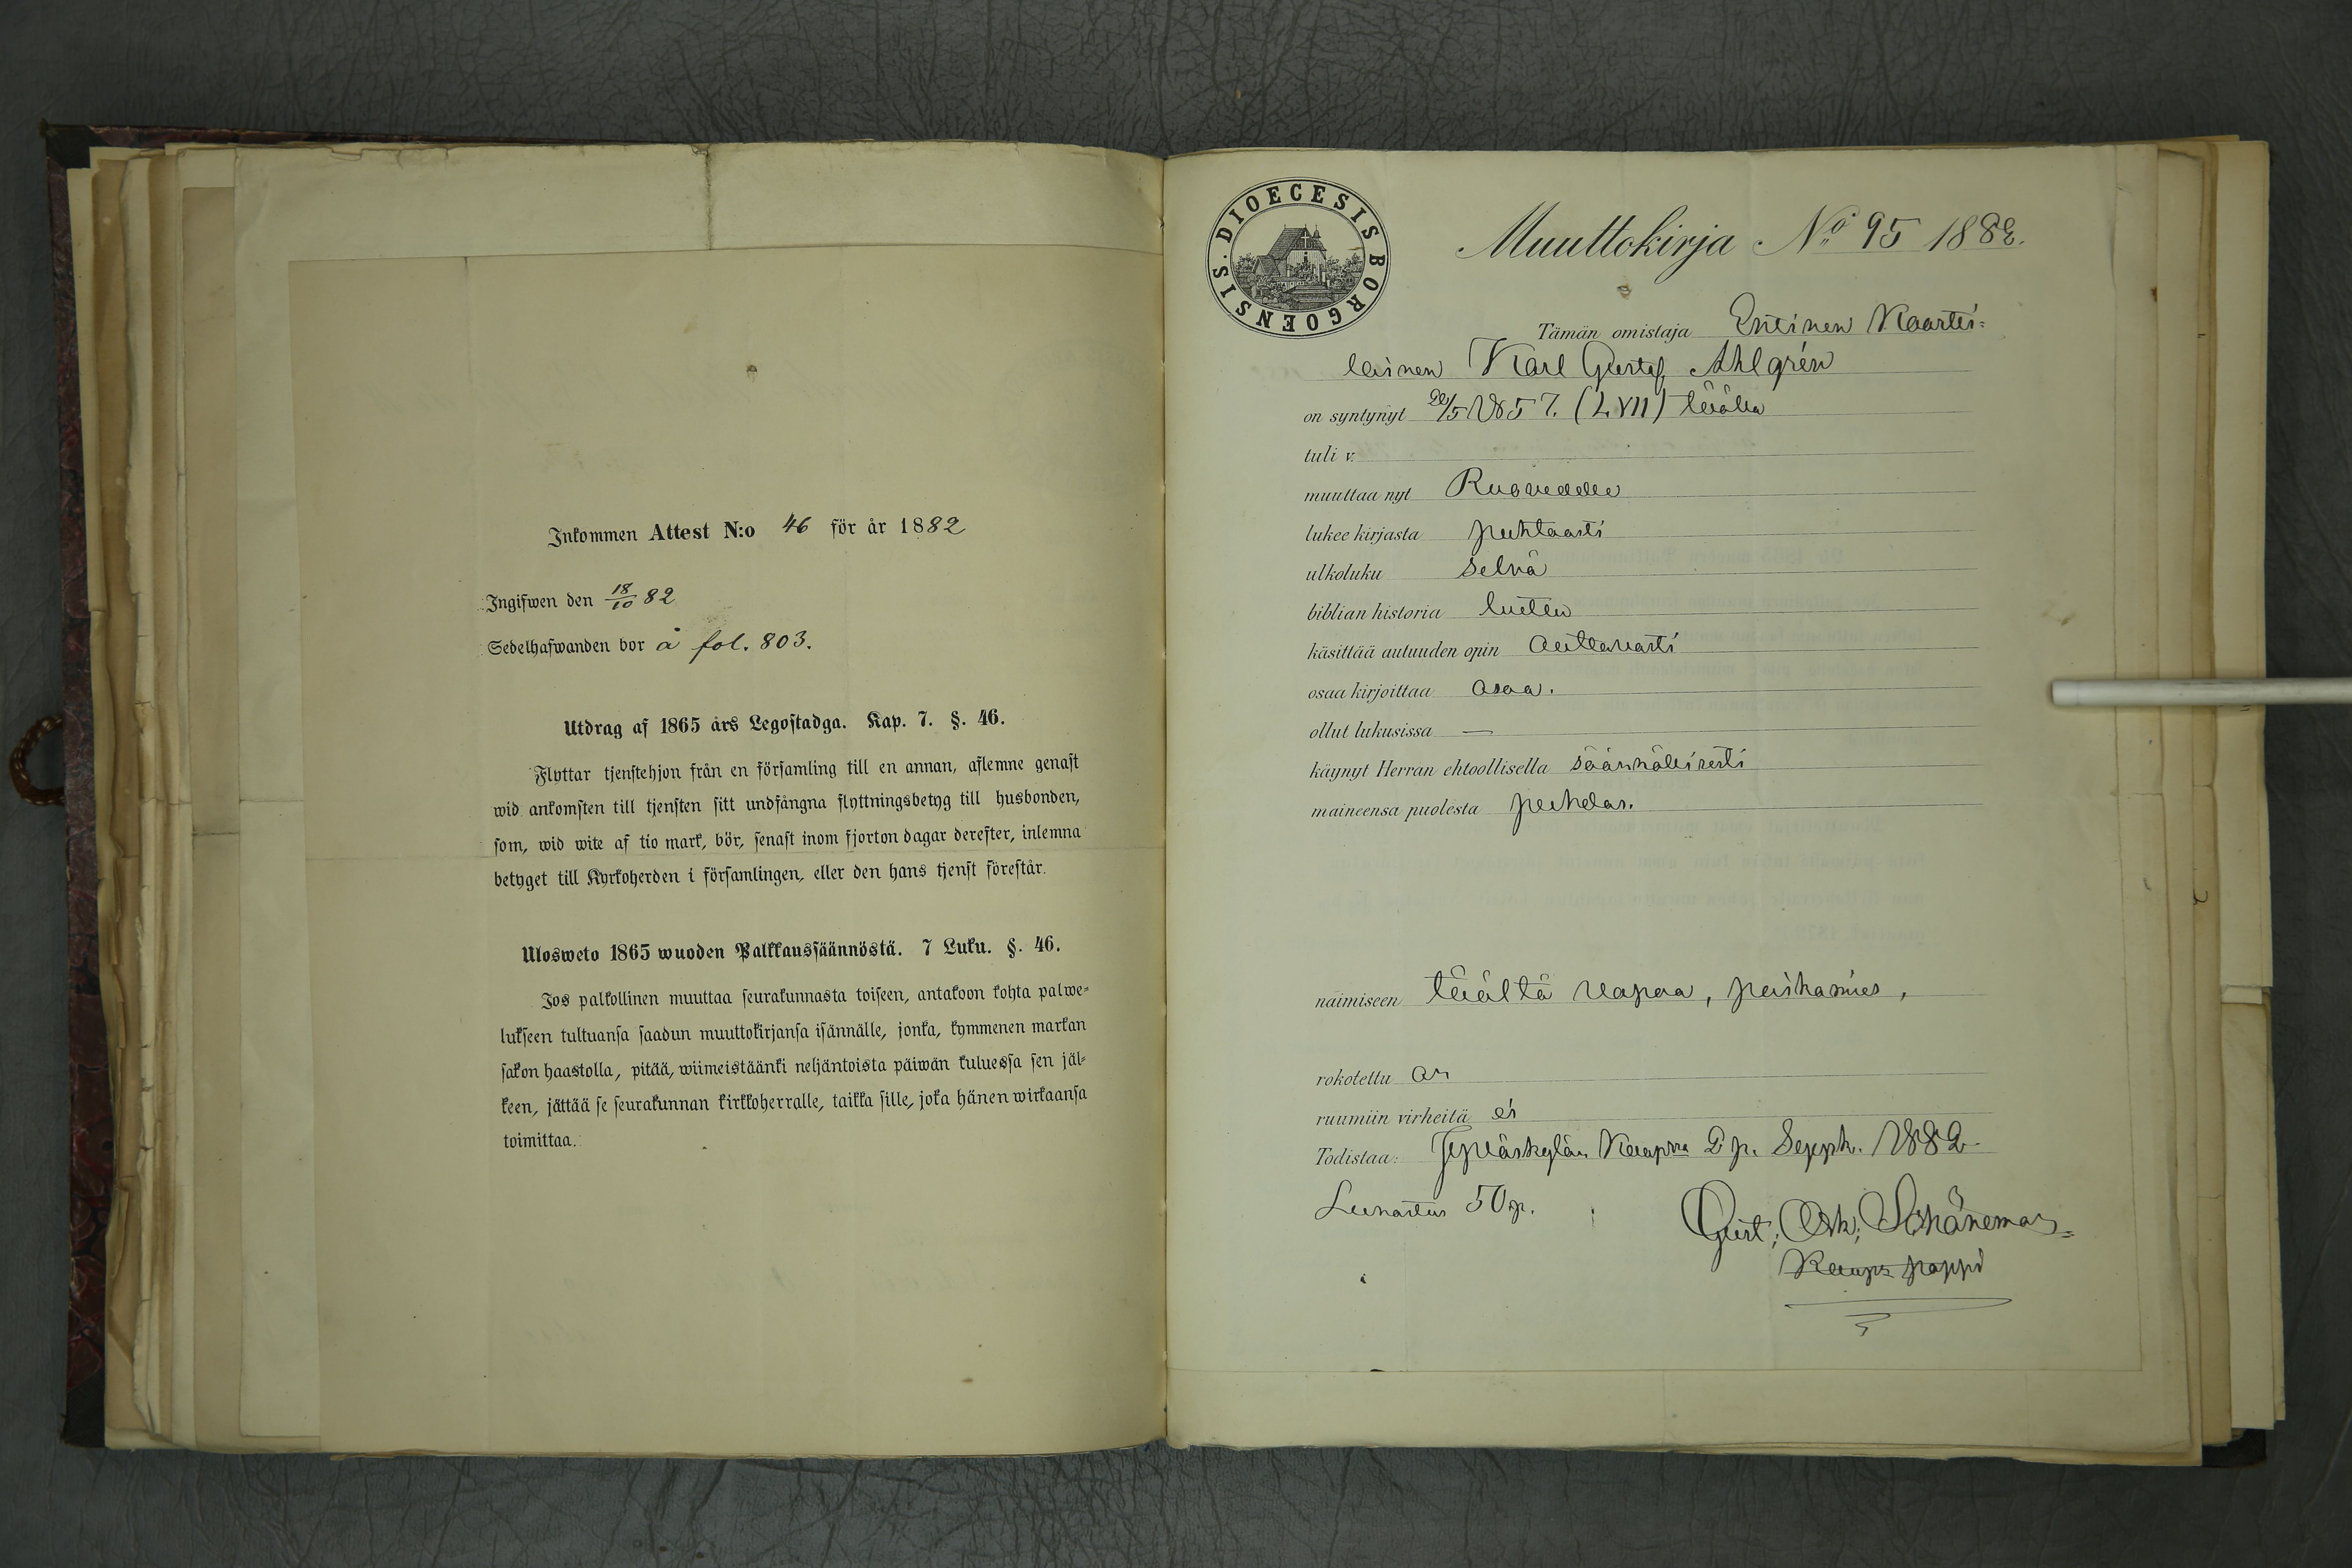 Inkommen Attest N:o 46 för år 1882
Ingifwen den 18/10 82
Sedelhafwanden bor å fol. 803.
Utdrag af 1865 års Legostadga. Kap. 7. §. 46.
Flyttar tjenstehjon från en församling till en annan, aflemne genast
wid ankomsten till tjensten sitt undfångna flyttningsbetyg till husbonden,
som, wid wite af tio mark, bör, senast inom fjorton dagar derefter, inlemna
betyget till Kyrkoherden i församlingen, eller den hans tjenst förestår.
Ulosweto 1865 wuoden Palkkaussäännöstä. 7 Luku. §. 46.
Jos palkollinen muuttaa seurakunnasta toiseen, antakoon kohta palwe-
lukseen tultuansa saadun muuttokirjansa isännälle, jonka, kymmenen markan
sakon haastolla, pitää, wiimeistäänki neljäntoista päiwän kuluessa sen jäl-
keen, jättää se seurakunnan kirkkoherralle, taikka sille, joka hänen wirkaansa
toimittaa.
DIOECESIS BORGOENSIS.
Muuttokirja No 95 1882.
Tämän omistaja Entinen Kaarti-
lainen Karl Gustaf Ahlgrén
on syntynyt /5 1857. (LVII) täällä
tuli v.
muuttaa nyt Ruovedelle
lukee kirjasta puhtaasti
ulkoluku selvä
biblian historia luettu
käsittää autuuden opin auttavasti
osaa kirjoittaa osaa.
ollut lukusissa —
käynyt Herran ehtoollisella säännöllisesti
maineensa puolesta puhdas.
naimiseen täältä vapaa, poikamies,
rokotettu on
ruumiin virheitä ei
Todistaa: Jyväskylän Kaup:ssa 2 p. Syysk. 1882
Lunastus 50 p.
Gust. Osk. Schöneman
Kaup:n pappi